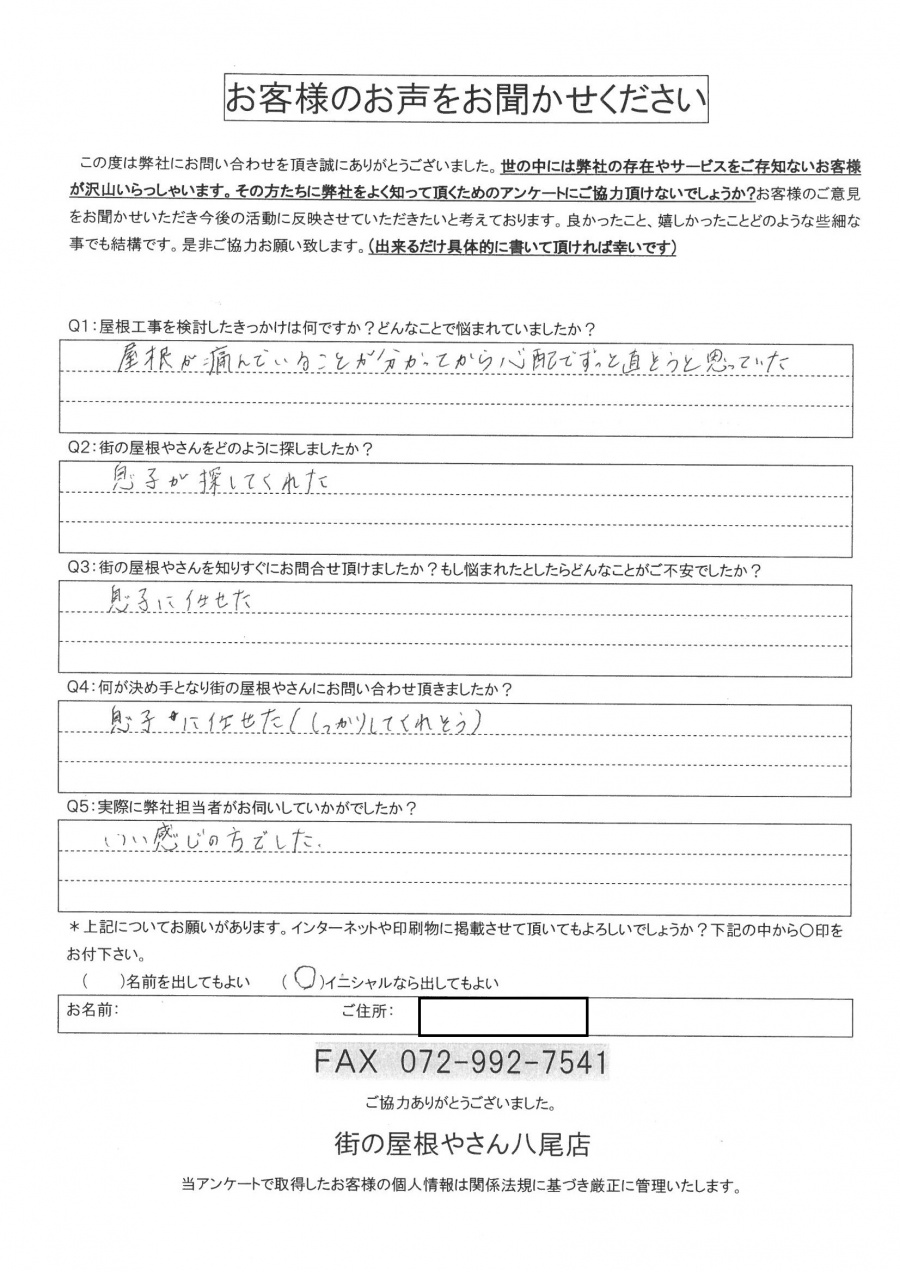 お客様のお声をお聞かせください
この度は弊社にお問い合わせを頂き誠にありがとうございました。世の中には弊社の存在やサービスをご存知ないお客様
が沢山いらっしゃいます。その方たちに弊社をよく知って頂くためのアンケートにご協力頂けないでしょうか?お客様のご意見
をお聞かせいただき今後の活動に反映させていただきたいと考えております。良かったこと、嬉しかったことどのような些細な
事でも結構です。是非ご協力お願い致します。(出来るだけ具体的に書いて頂ければ幸いです)
Q1:屋根工事を検討したきっかけは何ですか?どんなことで悩まれていましたか?
屋根が痛んでいることが分かってから心配でずっと直そうと思っていた
Q2:街の屋根やさんをどのように探しましたか?
息子が探してくれた
Q3:街の屋根やさんを知りすぐにお問合せ頂けましたか?もし悩まれたとしたらどんなことがご不安でしたか?
息子に任せた
Q4:何が決め手となり街の屋根やさんにお問い合わせ頂きましたか?
息子に任せた(しっかりしてくれそう)
Q5:実際に弊社担当者がお伺いしていかがでしたか?
いい感じの方でした.
*上記についてお願いがあります。インターネットや印刷物に掲載させて頂いてもよろしいでしょうか?下記の中から〇印を
お付下さい。
( )名前を出してもよい (〇)イニシャルなら出してもよい
お名前: ご住所:
FAX 072-992-7541
ご協力ありがとうございました。
街の屋根やさん八尾店
当アンケートで取得したお客様の個人情報は関係法規に基づき厳正に管理いたします。